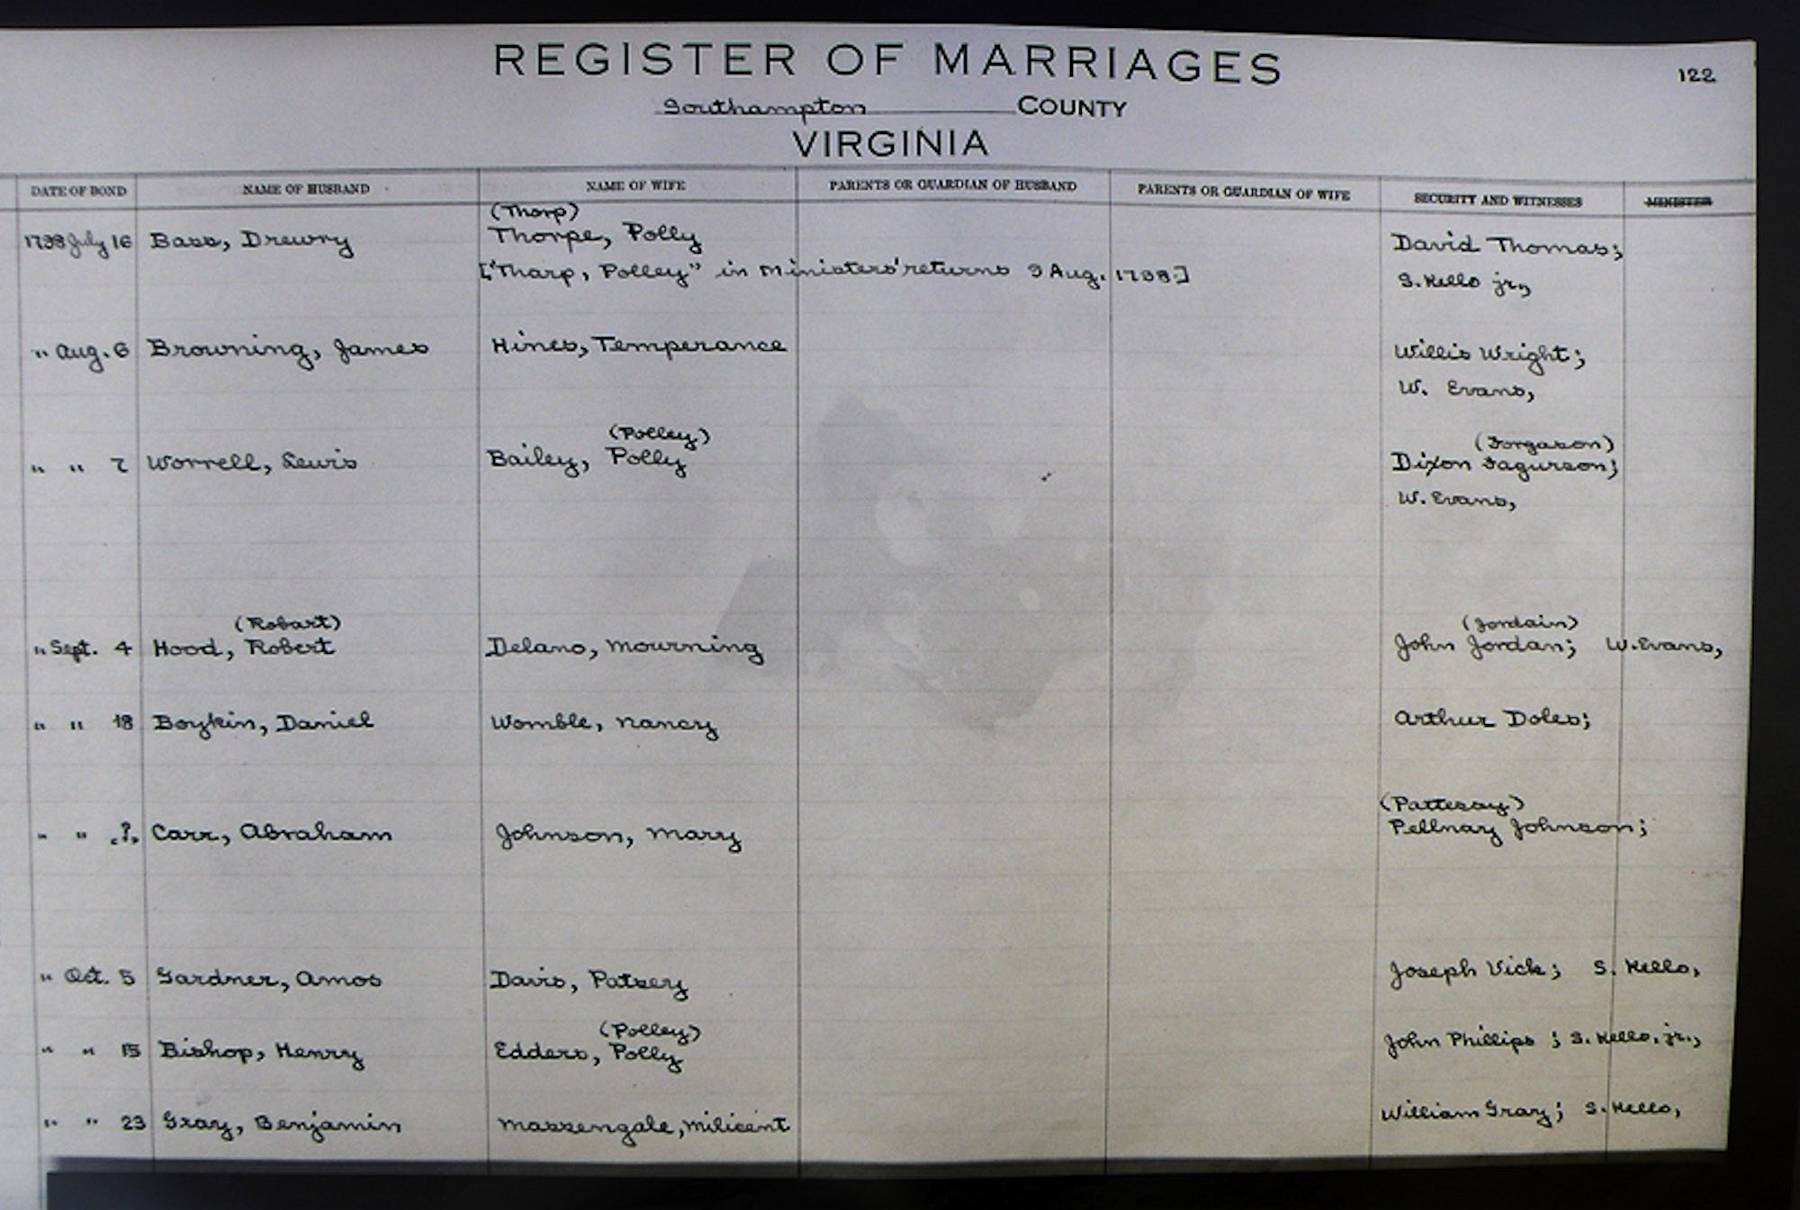 REGISTER OF MARRIAGES
122
Southampton COUNTY
VIRGINIA
DATE OF BOND NAME OF HUSBAND NAME OF WIFE PARENTS OR GUARDIAN OF HUSBAND PARENTS OR GUARDIAN OF WIFE SECURITY AND WITNESSES MINISTER
(Thorp)
1798 July 16 Bass, Drewry Thorpe, Polly David Thomas;
["Tharp, Polley" in Ministers' returns 9 Aug. 1798] S. Kello jr.,
" Aug. 6 Browning, James Hines, Temperance Willis Wright;
W. Evans,
(Polley) (Forgason)
" " 7 Worrell, Lewis Bailey, Polly Dixon Fagurson;
W. Evans,
(Robart) (Jordain)
" Sept. 4 Hood, Robert Delano, Mourning John Jordan; W. Evans,
" " 18 Boykin, Daniel Womble, Nancy Arthur Doles;
(Pattesay)
" " ? Carr, Abraham Johnson, Mary Pellnary Johnson;
" Oct. 5 Gardner, Amos Davis, Patsey Joseph Vick; S. Kello,
(Polley)
" " 15 Bishop, Henry Edders, Polly John Phillips; S. Kello, jr.,
" " 23 Gray, Benjamin Massengale, Milicent William Gray; S. Kello,